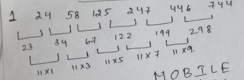 1 24 58 125 247 446 744
23 34 67 122 199 298
11x1 11x3 11x5 11x7 11x9
MOBILE